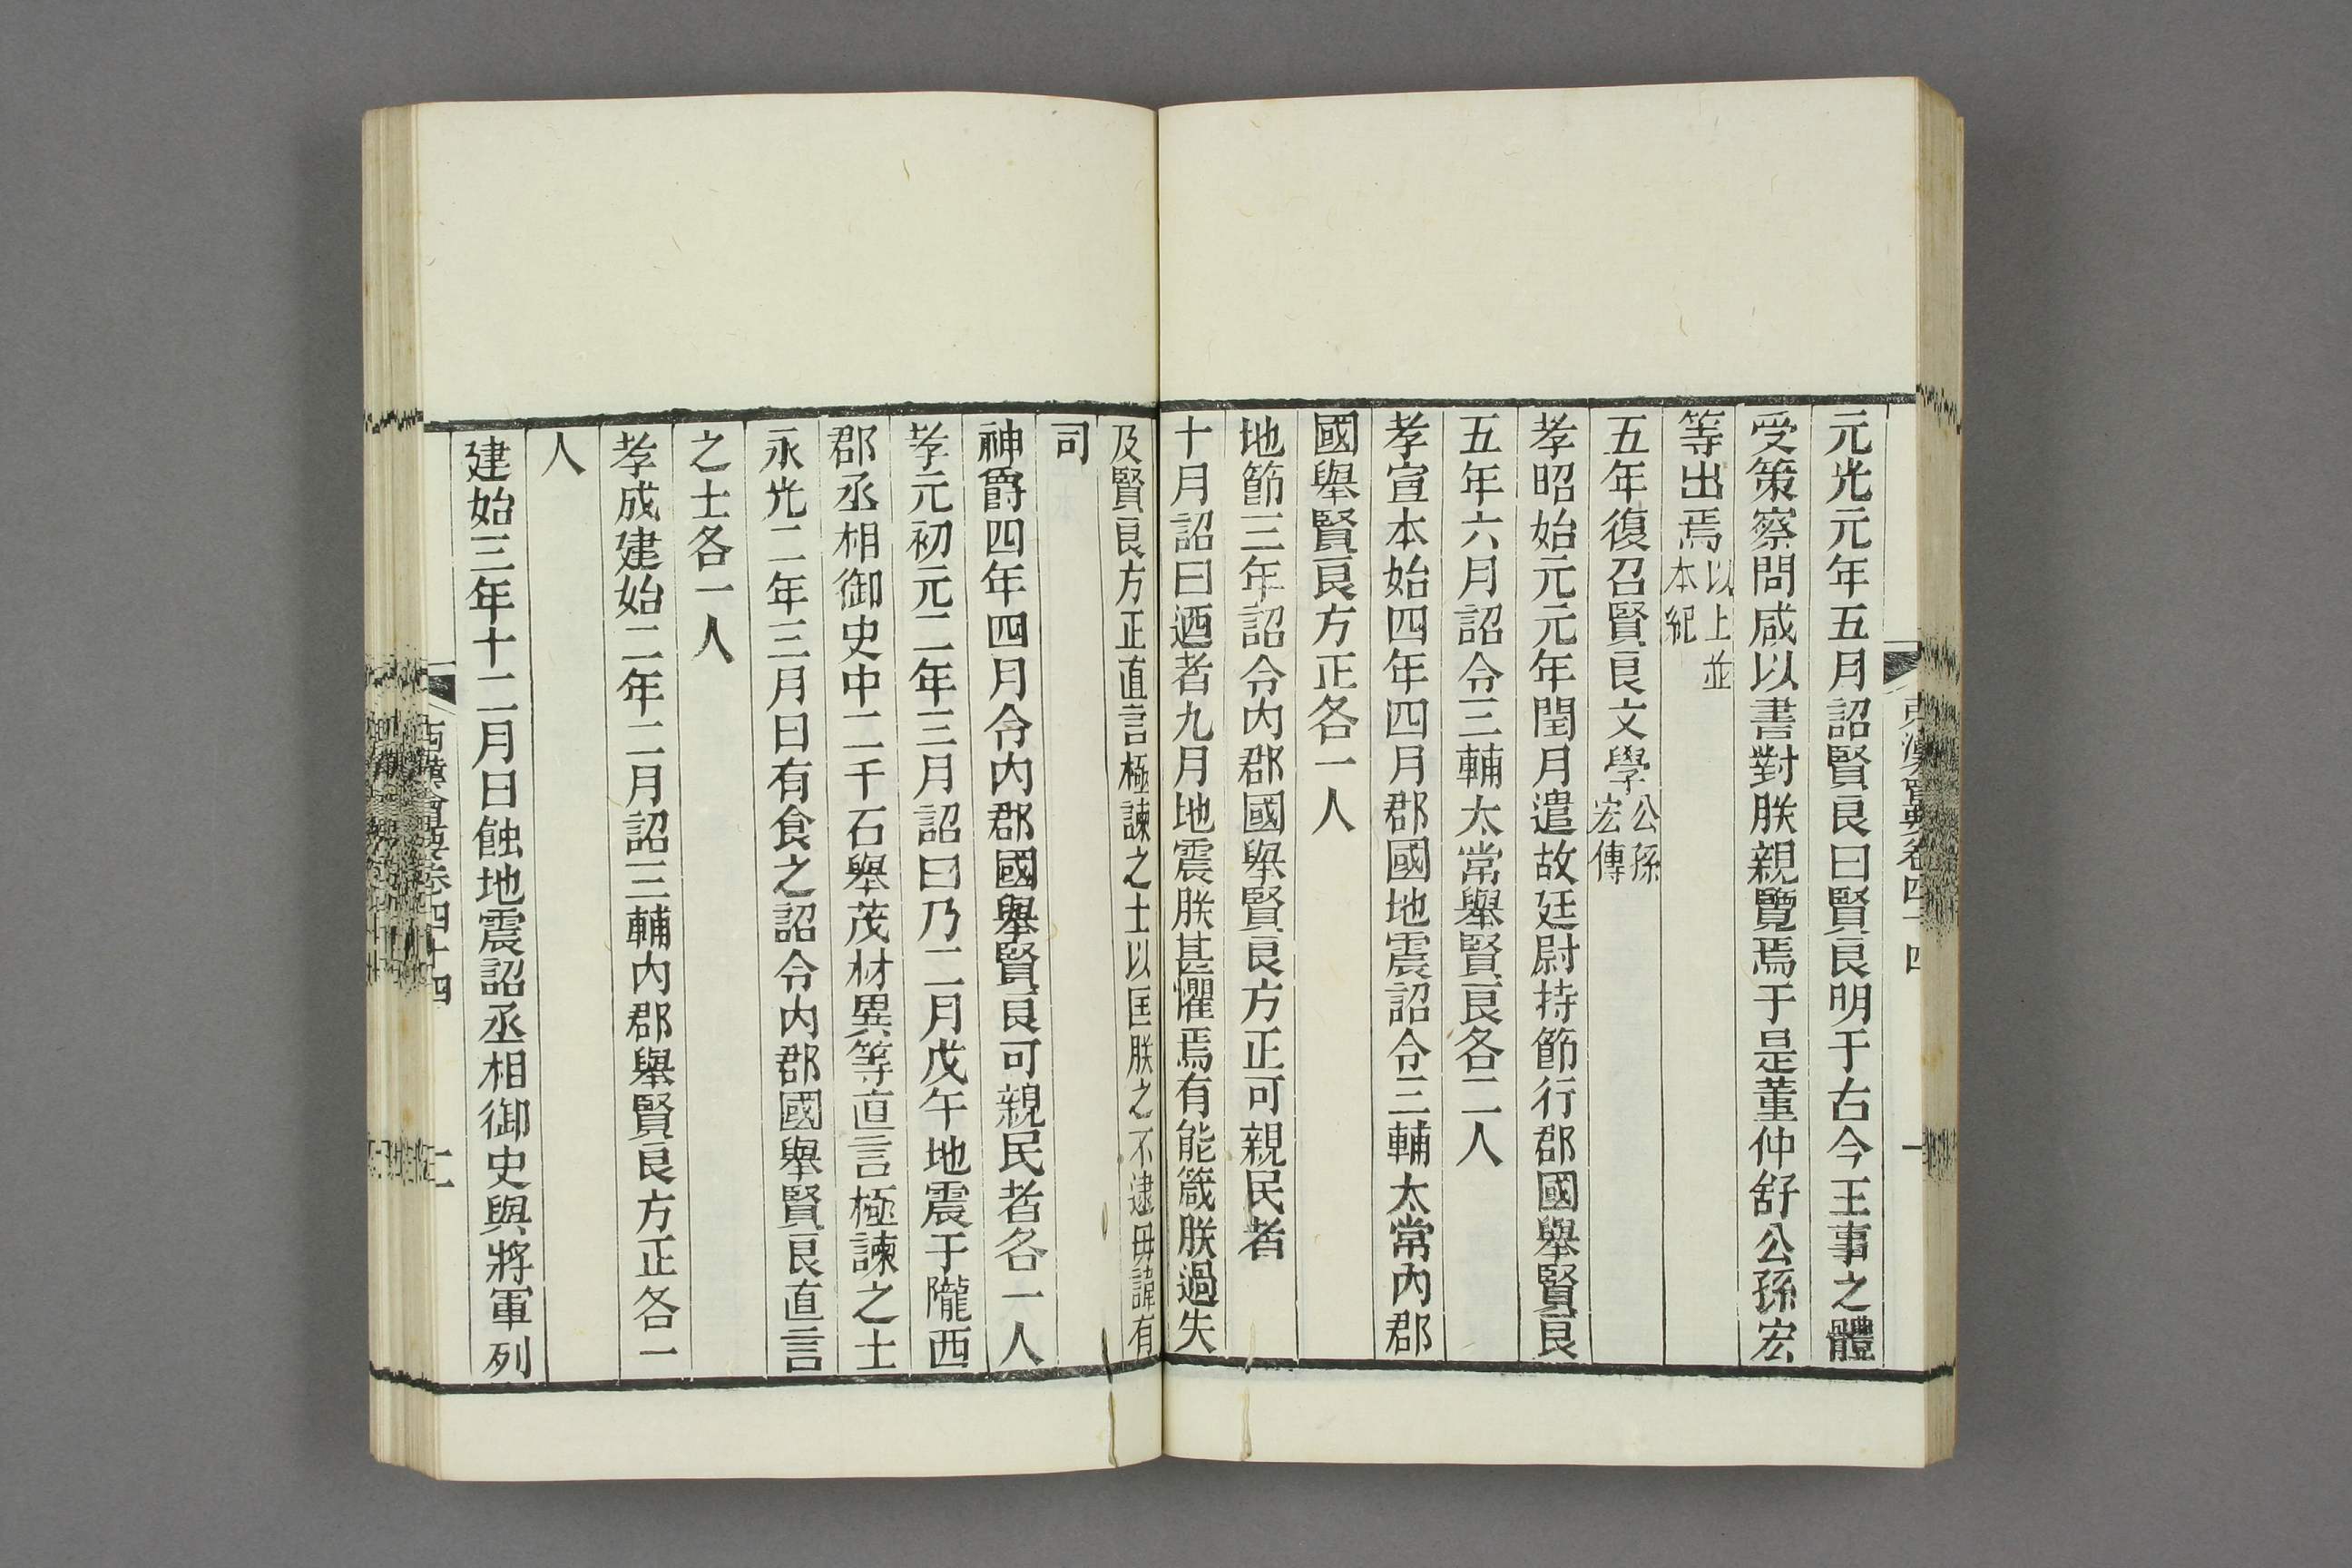 元光元年五月詔賢良曰賢良明于古今王事之體
受策察問咸以書對朕親覽焉于是董仲舒公孫宏
等出焉以上並本紀
五年復召賢良文學公孫宏傳
孝昭始元元年閏月遣故廷尉持節行郡國舉賢良
五年六月詔令三輔太常舉賢良各二人
孝宣本始四年四月郡國地震詔令三輔太常內郡
國舉賢良方正各一人
地節三年詔令內郡國舉賢良方正可親民者
十月詔曰迺者九月地震朕甚懼焉有能箴朕過失
及賢良方正直言極諫之士以匡朕之不逮毋諱有
司
神爵四年四月令內郡國舉賢良可親民者各一人
孝元初元二年三月詔曰乃二月戊午地震于隴西
郡丞相御史中二千石舉茂材異等直言極諫之士
永光二年三月日有食之詔令內郡國舉賢良直言
之士各一人
孝成建始二年二月詔三輔內郡舉賢良方正各一
人
建始三年十二月日蝕地震詔丞相御史與將軍列
西漢會要卷四十四
二